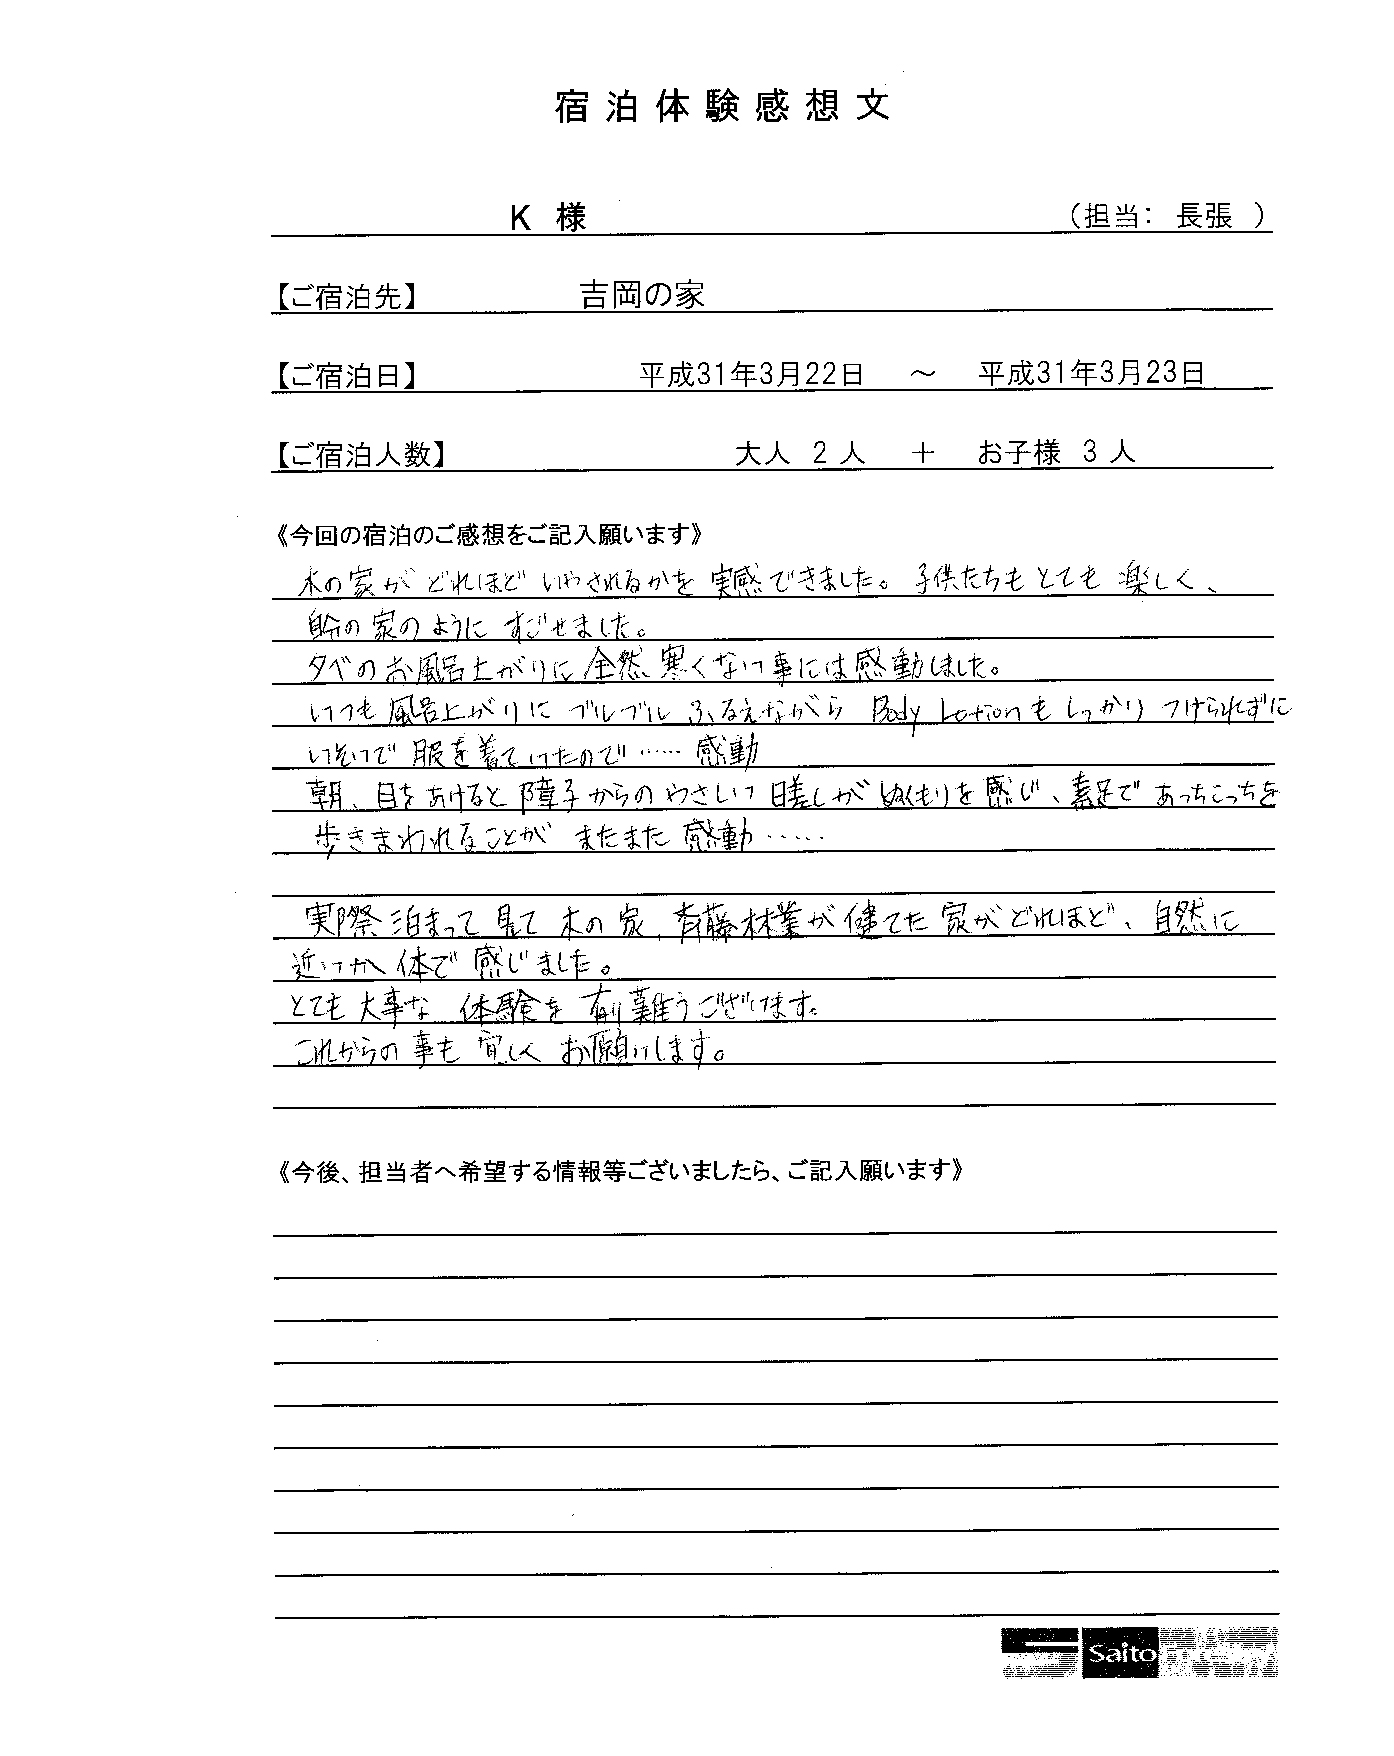 宿泊体験感想文
K 様 （担当： 長張 ）
【ご宿泊先】 吉岡の家
【ご宿泊日】 平成31年3月22日 ～ 平成31年3月23日
【ご宿泊人数】 大人 2 人 ＋ お子様 3 人
《今回の宿泊のご感想をご記入願います》
木の家がどれほどいやされるかを実感できました。子供たちもとても楽しく、
自分の家のようにすごせました。
夕べのお風呂上がりに全然寒くない事には感動しました。
いつも風呂上がりにブルブルふるえながら Body Lotionもしっかりつけられずに
いそいで服を着ていたので……感動
朝、目をあけると障子からのやさしい日差しがぬくもりを感じ、素足であっちこっちを
歩きまわれることがまたまた感動……
実際泊まって見て木の家、斉藤林業が健てた家がどれほど、自然に
近いか体で感じました。
とても大事な体験を有り難うございます。
これからの事も宜しくお願いします。
《今後、担当者へ希望する情報等ございましたら、ご記入願います》
Saito